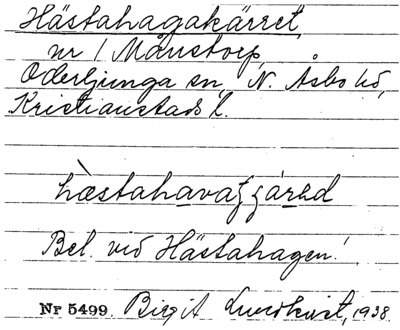 Hästahagakärret,
nr 1 Månstorp
Oderljunga sn, N. Åsbo hd,
Kristianstads l.
Bel. vid Hästahagen!
Nr 5499. Birgit Lundkvist, 1938